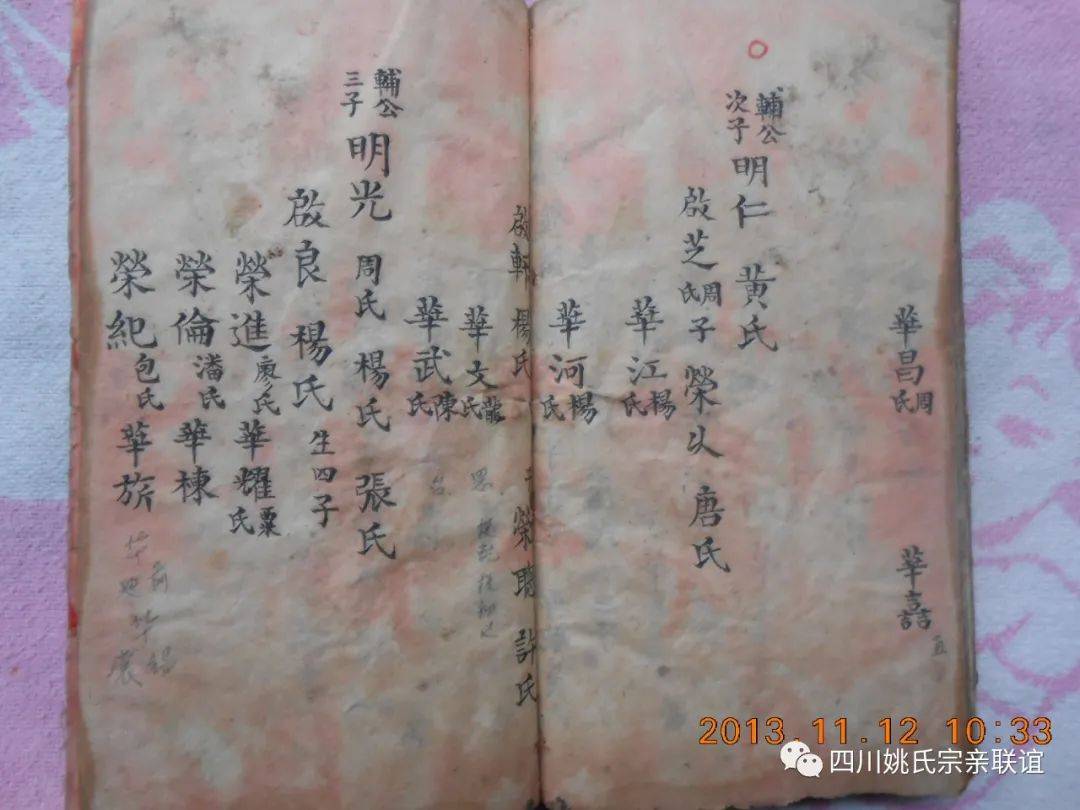 華昌周氏
華譶
五
輔公次子 明仁 黃氏
啟芝周氏 子 榮㕥 唐氏
華江楊氏
華河楊氏
啟軒 楊氏 子 榮聰 許氏
華文龍氏
華武陳氏
輔公三子 明光 周氏 楊氏 張氏
啟良 楊氏 生四子
榮進廖氏 華耀粟氏
榮倫潘氏 華棟
榮紀包氏 華旂
2013.11.12 10:33
四川姚氏宗亲联谊